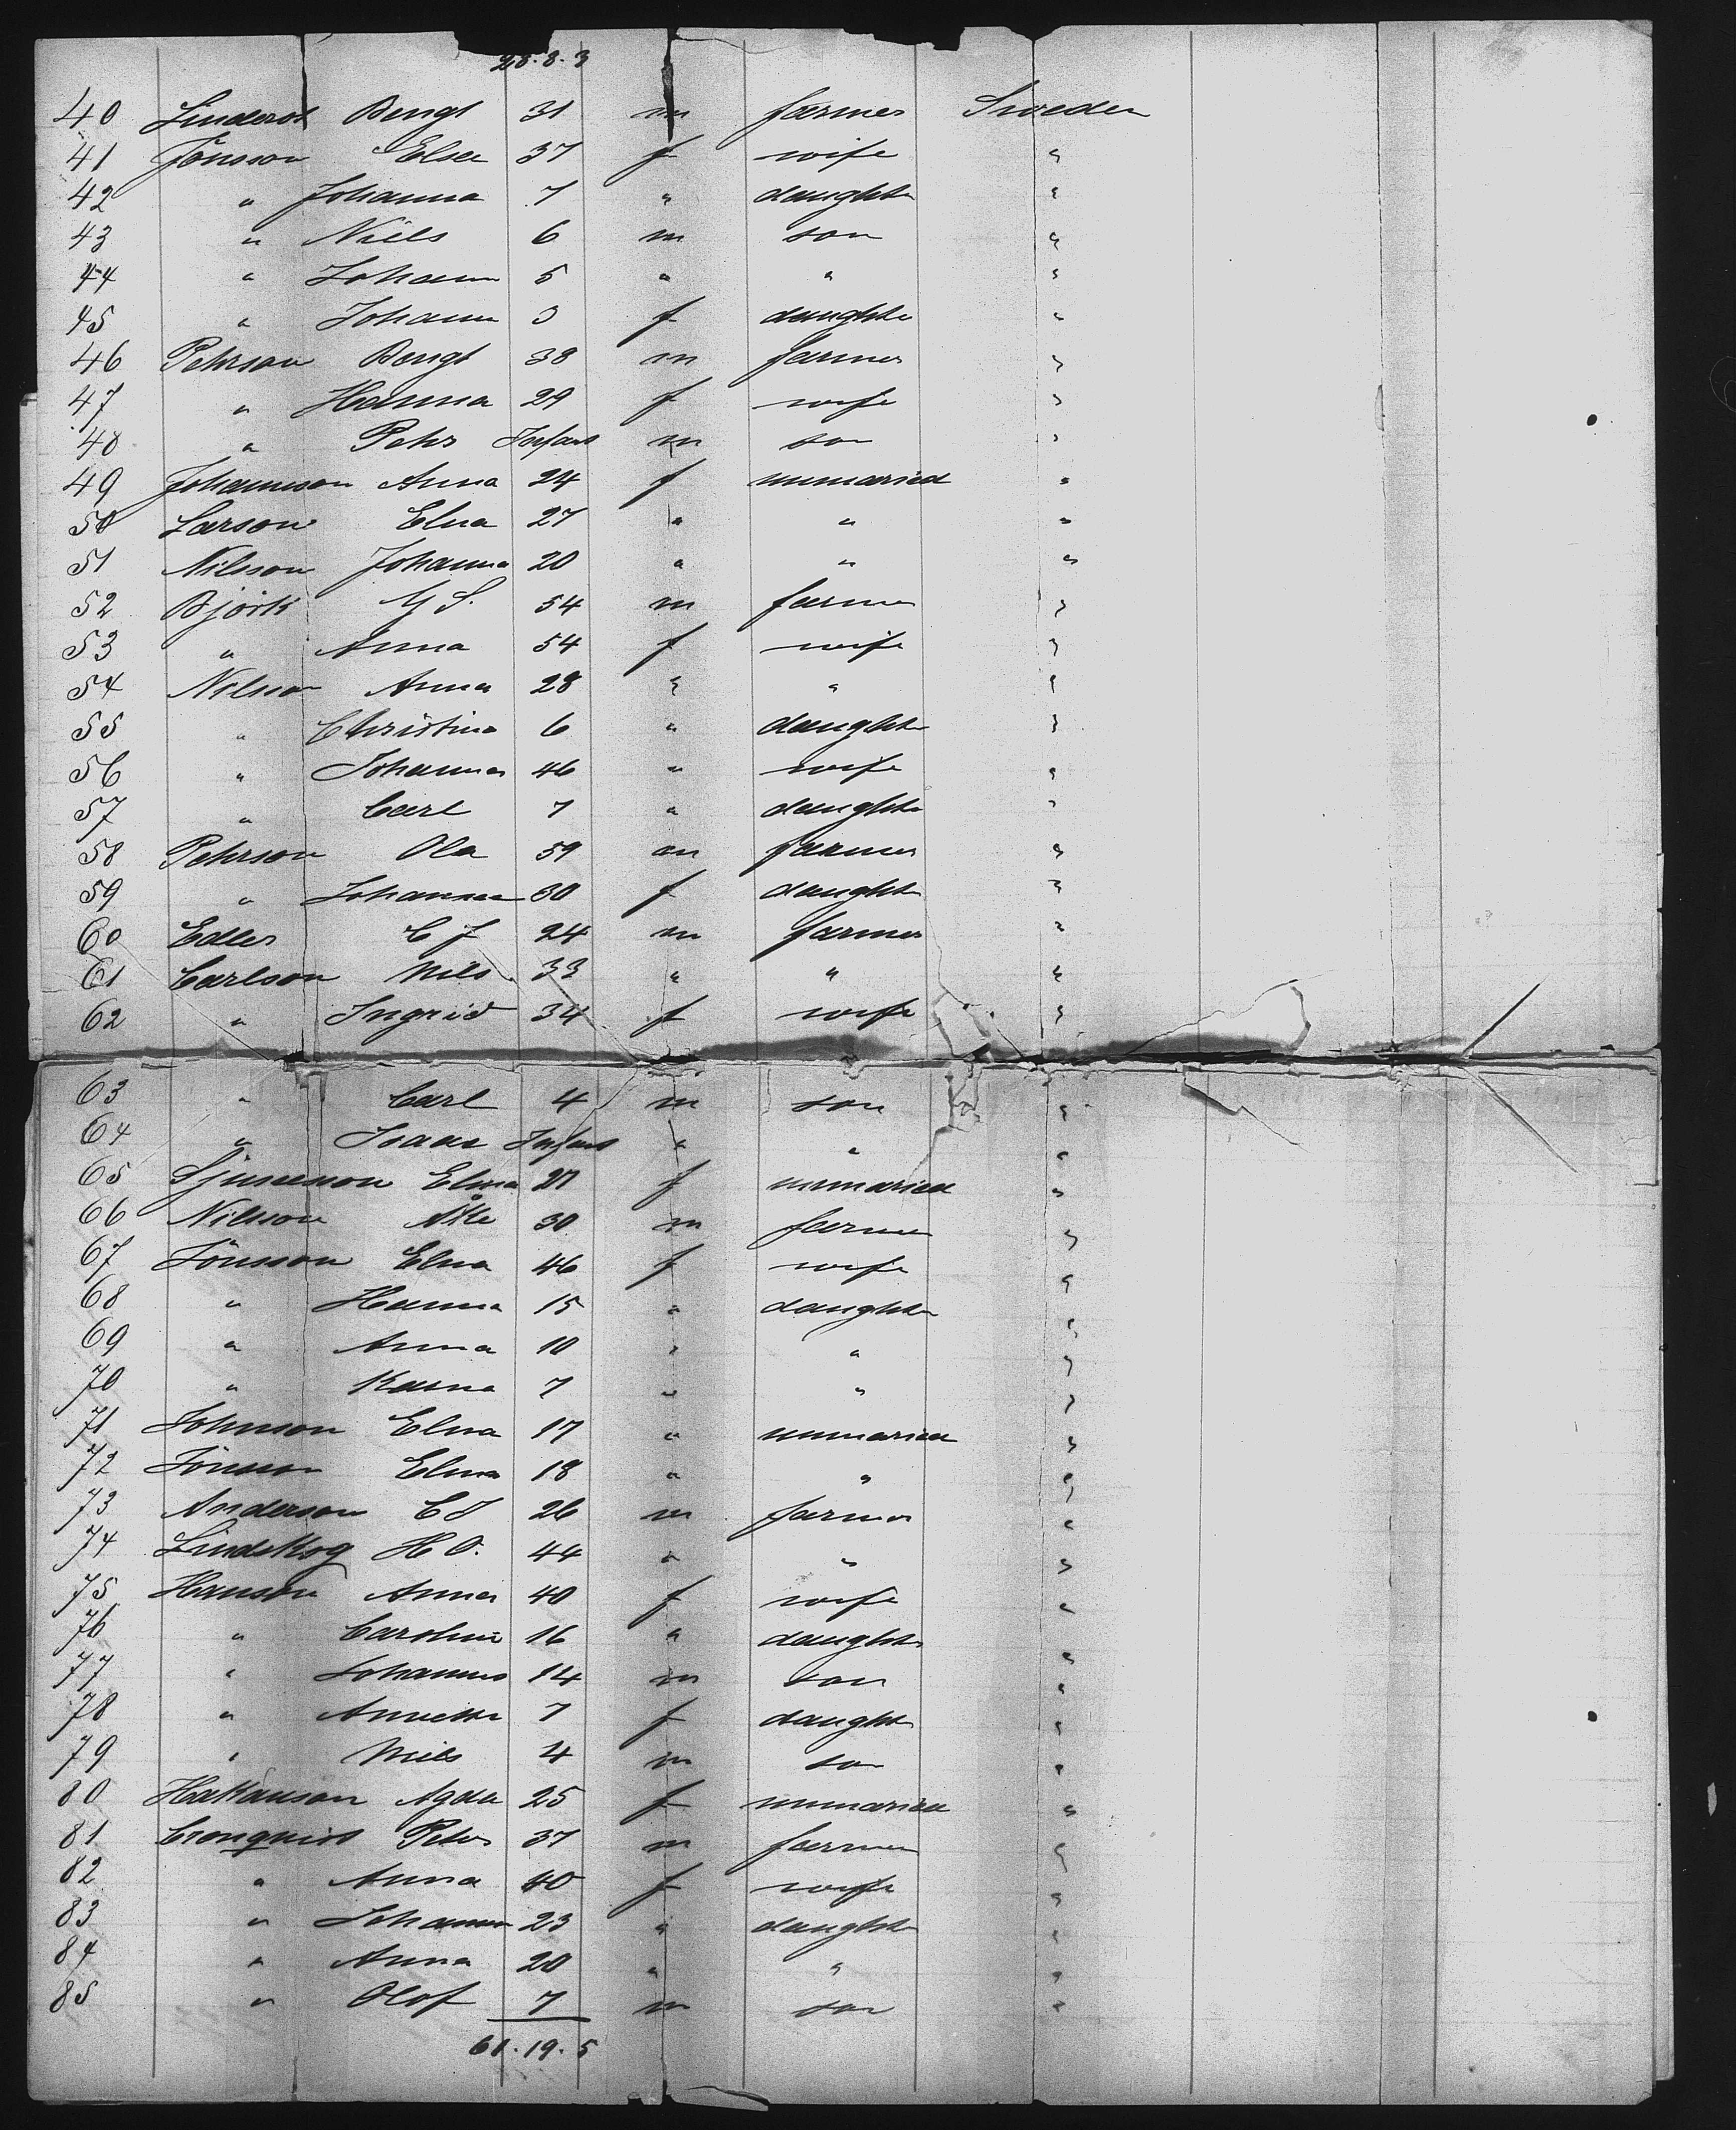 28.8.3
40 Bengt 31 m farmer Sweden
41 Jönsson Elsa 37 f wife "
42 " Johanna 7 " daught "
43 " Niels 6 m son "
44 " Johann 5 " " "
45 " Johann 3 f daught "
46 Pehrson Bengt 38 m farmer "
47 " Hanna 29 f wife "
48 " Pehr Infant m son "
49 Johannson Anna 24 f unmaried "
50 Larson Elna 27 " " "
51 Nilsson Johanna 20 " " "
52 Björk S. 54 m farmer "
53 " Anna 54 f wife "
54 Nilsson Anna 28 " " "
55 " Christina 6 " daught "
56 " Johanna 46 " wife "
57 " Carl 7 " daught "
58 Pehrson Ola 59 m farmer "
59 " Johanna 30 f daught "
60 Edler C J 24 m farmer "
61 Carlson Nils 33 " " "
62 " Ingrid 34 f wife "
63 " Carl 4 m son "
64 " Isaac Infant " " "
65 Elna 27 f unmaried "
66 Nilsson Åke 30 m farmer "
67 Jönsson Elna 46 f wife "
68 " Hanna 15 " daught "
69 " Anna 10 " " "
70 " Karna 7 " " "
71 Johnson Elna 17 " unmaried "
72 Jönsson Elna 18 " " "
73 Anderson C J 26 m farmer "
74 Lindskog H O. 44 " " "
75 Hanson Anna 40 f wife "
76 " Caroline 16 " daught "
77 " Johannes 14 m son "
78 " Annette 7 f daught "
79 " Niels 4 m son "
80 Hakanson Agda 25 f unmaried "
81 Cronquist Peter 37 m farmer "
82 " Anna 40 f wife "
83 " Johanna 23 " daught "
84 " Anna 20 " " "
85 " Olof 7 m son "
61.19.5